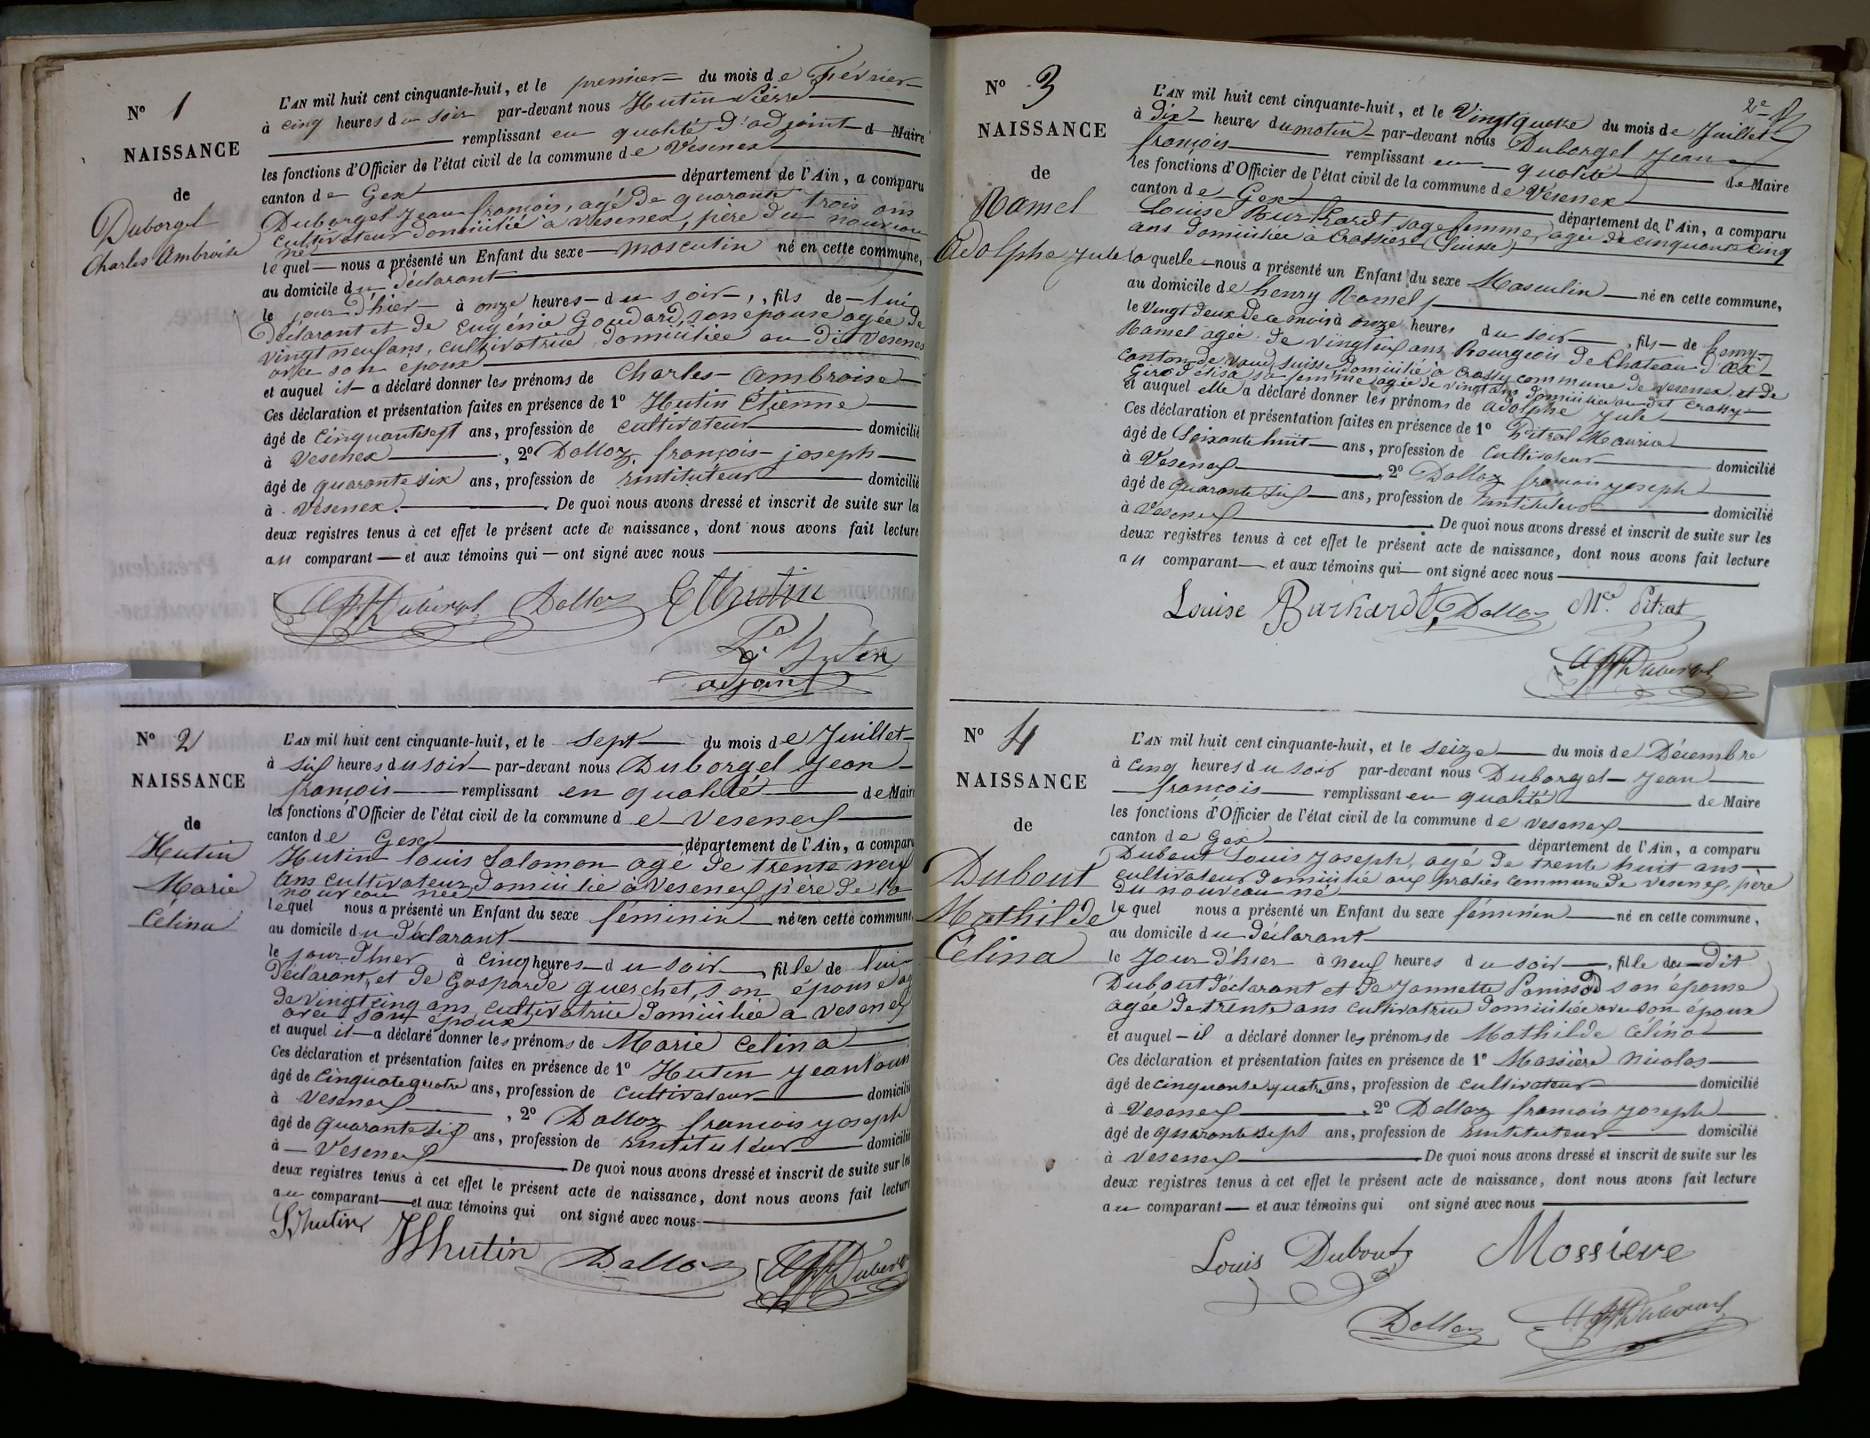 N° 1
NAISSANCE
de
Duborgel
Charles Ambroise
L'AN mil huit cent cinquante-huit, et le premier du mois de Février
à cinq heures du soir par-devant nous Hutin Pierre
remplissant en qualité d'adjoint d Maire
les fonctions d'Officier de l'état civil de la commune de Vesenex
canton de Gex département de l'Ain, a comparu
Duborgel Jean françois, agé de quarante trois ans
cultivateur domicilié à Vesenex, père du nouveau
né
lequel nous a présenté un Enfant du sexe masculin né en cette commune,
au domicile du déclarant
le jour d'hier à onze heures du soir, fils de lui
déclarant et de Eugénie Goudard, son épouse agée de
vingt neuf ans, cultivatrice domiciliée au dit Vesenex
avec son époux
et auquel il a déclaré donner les prénoms de Charles Ambroise
Ces déclaration et présentation faites en présence de 1° Hutin Etienne
âgé de cinquante sept ans, profession de cultivateur domicilié
à Vesenex, 2° Dalloz, françois joseph
âgé de quarante six ans, profession de instituteur domicilié
à Vesenex. De quoi nous avons dressé et inscrit de suite sur les
deux registres tenus à cet effet le présent acte de naissance, dont nous avons fait lecture
au comparant et aux témoins qui ont signé avec nous
Duborgel Dalloz E Hutin
P. Hutin
adjoint
N° 2
NAISSANCE
de
Hutin
Marie
Celina
L'AN mil huit cent cinquante-huit, et le sept du mois de Juillet
à six heures du soir par-devant nous Duborgel Jean
françois remplissant en qualité de Maire
les fonctions d'Officier de l'état civil de la commune de Vesenex
canton de Gex département de l'Ain, a comparu
Hutin louis Salomon agé de trente neuf
ans cultivateur, domicilié à Vesenex père de la
nouveau née
lequel nous a présenté un Enfant du sexe féminin né en cette commune,
au domicile du déclarant
le jour d'hier à cinq heures du soir, fille de lui
déclarant, et de Gasparde querchet, son épouse ag
de vingt cinq ans, cultivatrice domiciliée à Vesenex
avec son époux
et auquel il a déclaré donner les prénoms de Marie Celina
Ces déclaration et présentation faites en présence de 1° Hutin Jean louis
âgé de cinquate quatre ans, profession de cultivateur domicilié
à Vesenex, 2° Dalloz françois joseph
âgé de quarante six ans, profession de instituteur domicilié
à Vesenex De quoi nous avons dressé et inscrit de suite sur les
deux registres tenus à cet effet le présent acte de naissance, dont nous avons fait lecture
au comparant et aux témoins qui ont signé avec nous
Hutin Hutin Dalloz Duborgel
2e
N° 3
NAISSANCE
de
Ramel
Adolphe Jule
L'AN mil huit cent cinquante-huit, et le Vingt quatre du mois de Juillet
à dix heures du matin par-devant nous Duborgel Jean
françois remplissant en qualité de Maire
les fonctions d'Officier de l'état civil de la commune de Vesenex
canton de Gex département de l'Ain, a comparu
Louise Burkardt sage femme, agée de cinquante cinq
ans domiciliée à Crassier (Suisse)
laquelle nous a présenté un Enfant du sexe Masculin né en cette commune,
au domicile de henry Ramel
le Vingt deux de ce mois à onze heures du soir, fils de henry
Ramel agée de vingt six ans bourgeois de Chateau d'oex
canton de vaud, Suisse domicilié à Crassy commune de Vesenex et de
Girod elisa sa femme agée de vingt ans domiciliée au dit Crassy
et auquel elle a déclaré donner les prénoms de adolphe Jule
Ces déclaration et présentation faites en présence de 1° Pitrat Maurice
âgé de Soixante huit ans, profession de Cultivateur domicilié
à Vesenex 2° Dalloz françois joseph
âgé de quarante six ans, profession de instituteur domicilié
à Vesenex De quoi nous avons dressé et inscrit de suite sur les
deux registres tenus à cet effet le présent acte de naissance, dont nous avons fait lecture
au comparant et aux témoins qui ont signé avec nous
Louise Burkardt, Dalloz Mce Pitrat
Duborgel
N° 4
NAISSANCE
de
Dubout
Mathilde
Célina
L'AN mil huit cent cinquante-huit, et le seize du mois de Décembre
à cinq heures du soir par-devant nous Duborgel Jean
françois remplissant en qualité de Maire
les fonctions d'Officier de l'état civil de la commune de Vesenex
canton de Gex département de l'Ain, a comparu
Dubout Louis Joseph, agé de trente huit ans
cultivateur domicilié aux praliés commune de Vesenex, père
du nouveau né
lequel nous a présenté un Enfant du sexe féminin né en cette commune,
au domicile du déclarant
le Jour d'hier à neuf heures du soir, fille du dit
Dubout déclarant et de Jannette Panissod son épouse
agée de trente ans cultivatrice domiciliée avec son époux
et auquel il a déclaré donner les prénoms de Mathilde Célina
Ces déclaration et présentation faites en présence de 1° Massière Nicolas
âgé de cinquante quatre ans, profession de cultivateur domicilié
à Vesenex, 2° Dalloz françois joseph
âgé de quarante sept ans, profession de instituteur domicilié
à Vesenex De quoi nous avons dressé et inscrit de suite sur les
deux registres tenus à cet effet le présent acte de naissance, dont nous avons fait lecture
au comparant et aux témoins qui ont signé avec nous
Louis Dubout Mossiere
Dalloz Duborgel